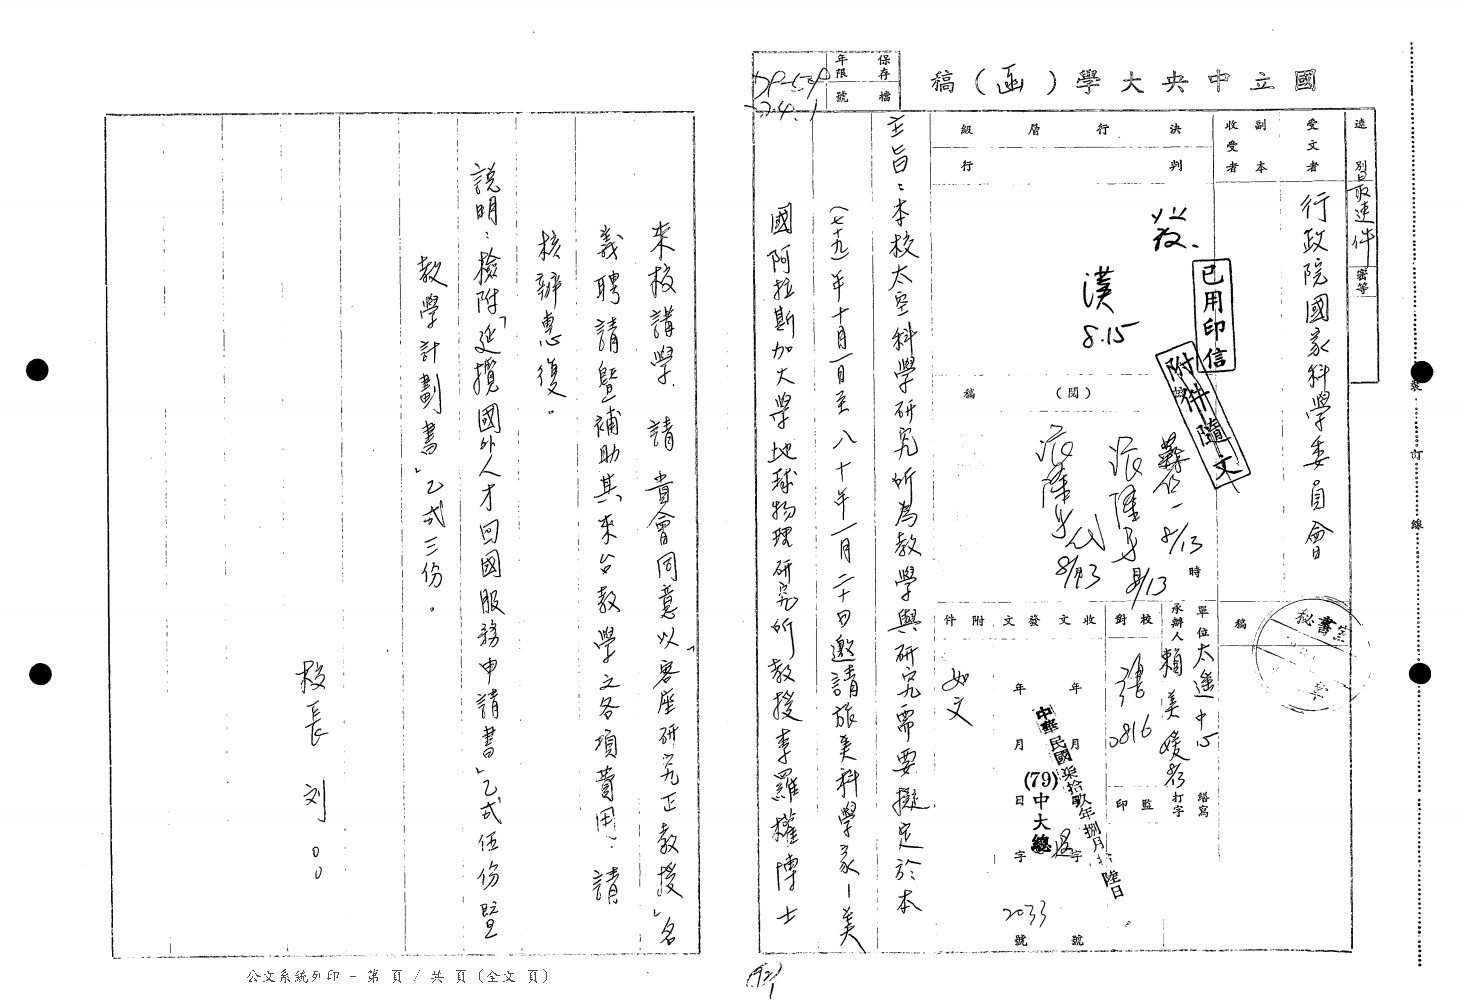 國立中央大學（函）稿
保存年限
檔號
速別
最速件
密等
受文者
行政院國家科學委員會
副本收受者
決行層級
判行
發
漢
8.15
已用印信
附件隨文
（閱）
稿
8/13
8/13
8/13
時
秘書室
稿
單位
太遙中心
承辦人
賴美媛
繕寫
打字
校對
0816
監印
收文
年月日
字號
發文
年月日
字號
中華民國柒拾玖年捌月拾陸日
(79)中大總
2033
附件
如文
主旨：本校太空科學研究所為教學與研究需要擬定於本
（七十九）年十月一日至八十年一月二十日邀請旅美科學家－美
國阿拉斯加大學地球物理研究所教授李羅權博士
來校講學、請 貴會同意以「客座研究正教授」名
義聘請暨補助其來台教學之各項費用，請
核辦惠復。
說明：檢附「延攬國外人才回國服務申請書」乙式伍份暨
教學計劃書」乙式三份。
校長 劉○○
裝訂線
公文系統列印 - 第 頁 / 共 頁 (全文 頁)